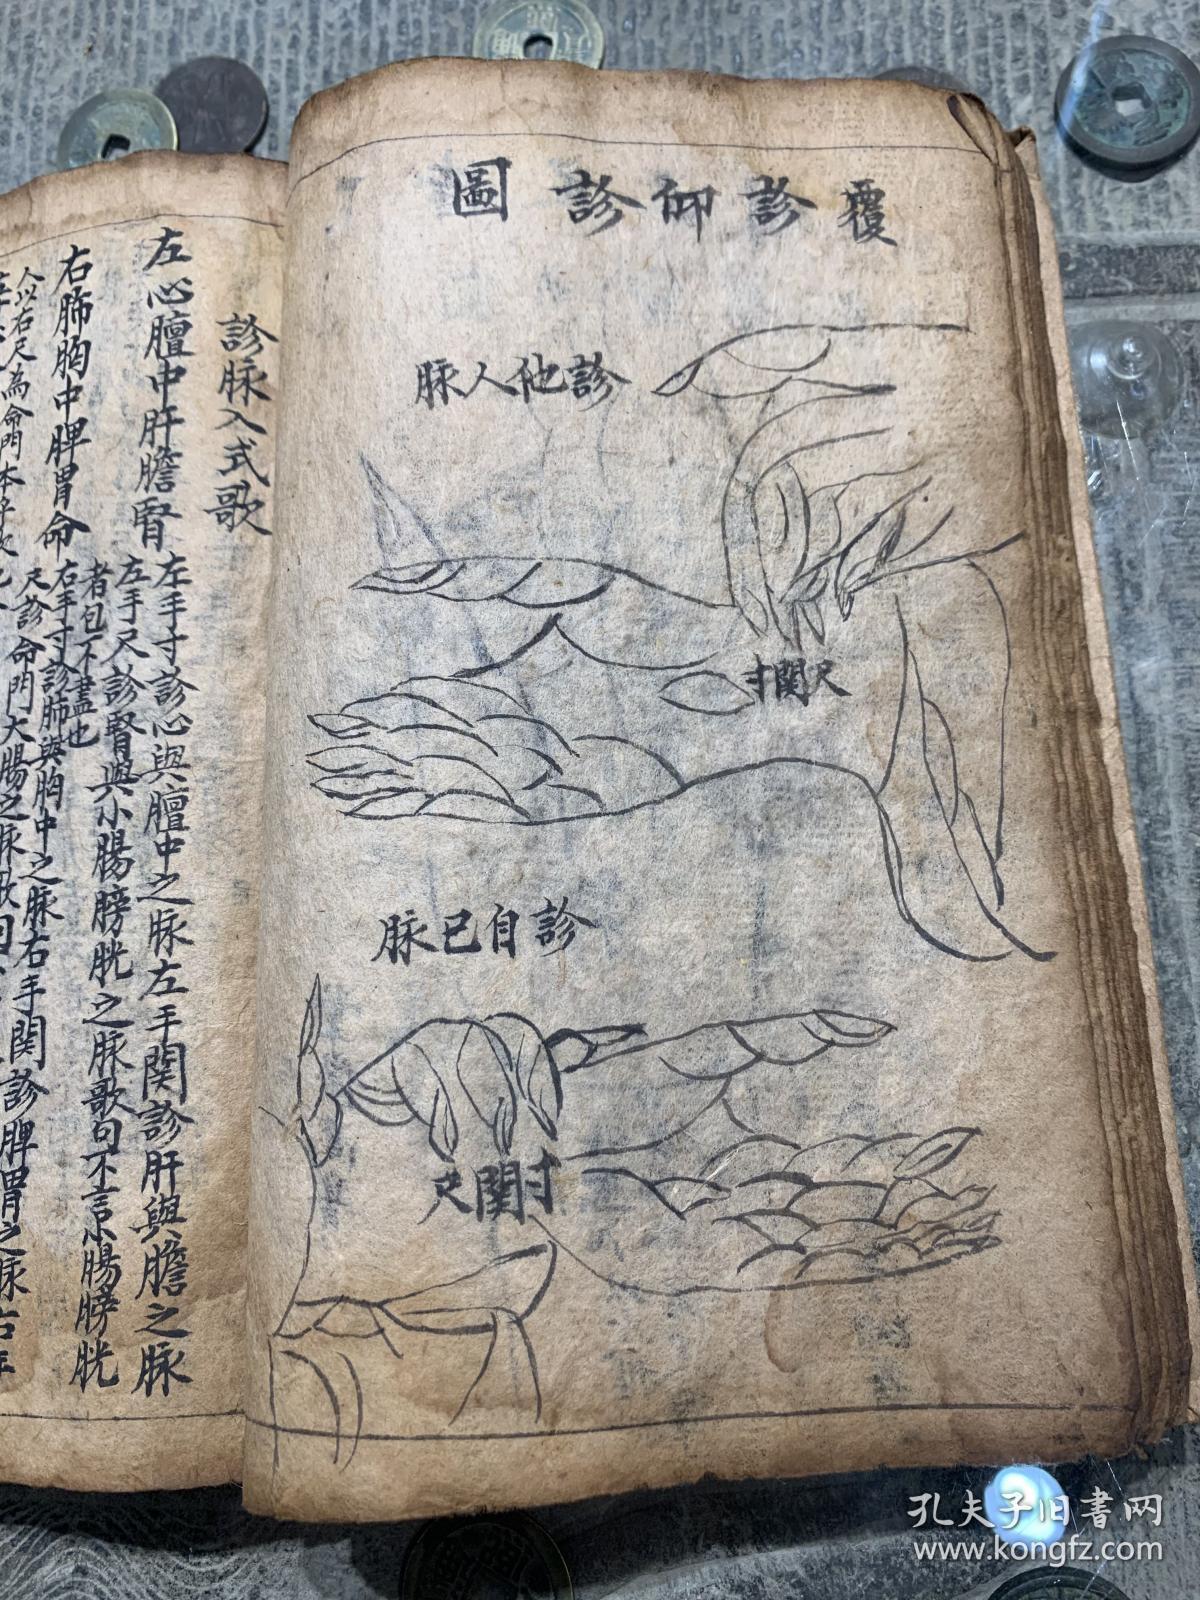 覆診仰診圖
診他人脉
寸關尺
診自已脉
尺關寸
診脉入式歌
左心膻中肝膽腎
左手寸診心與膻中之脉左手関診肝與膽之脉
左手尺診腎與小腸膀胱之脉歌句不言小腸膀胱
者包不盡也
右肺胸中脾胃命
右手寸診肺與胸中之脉右手関診脾胃之脉右手
尺診命門大腸之脉歌
人以右尺為命門本
孔夫子旧书网
www.kongfz.com